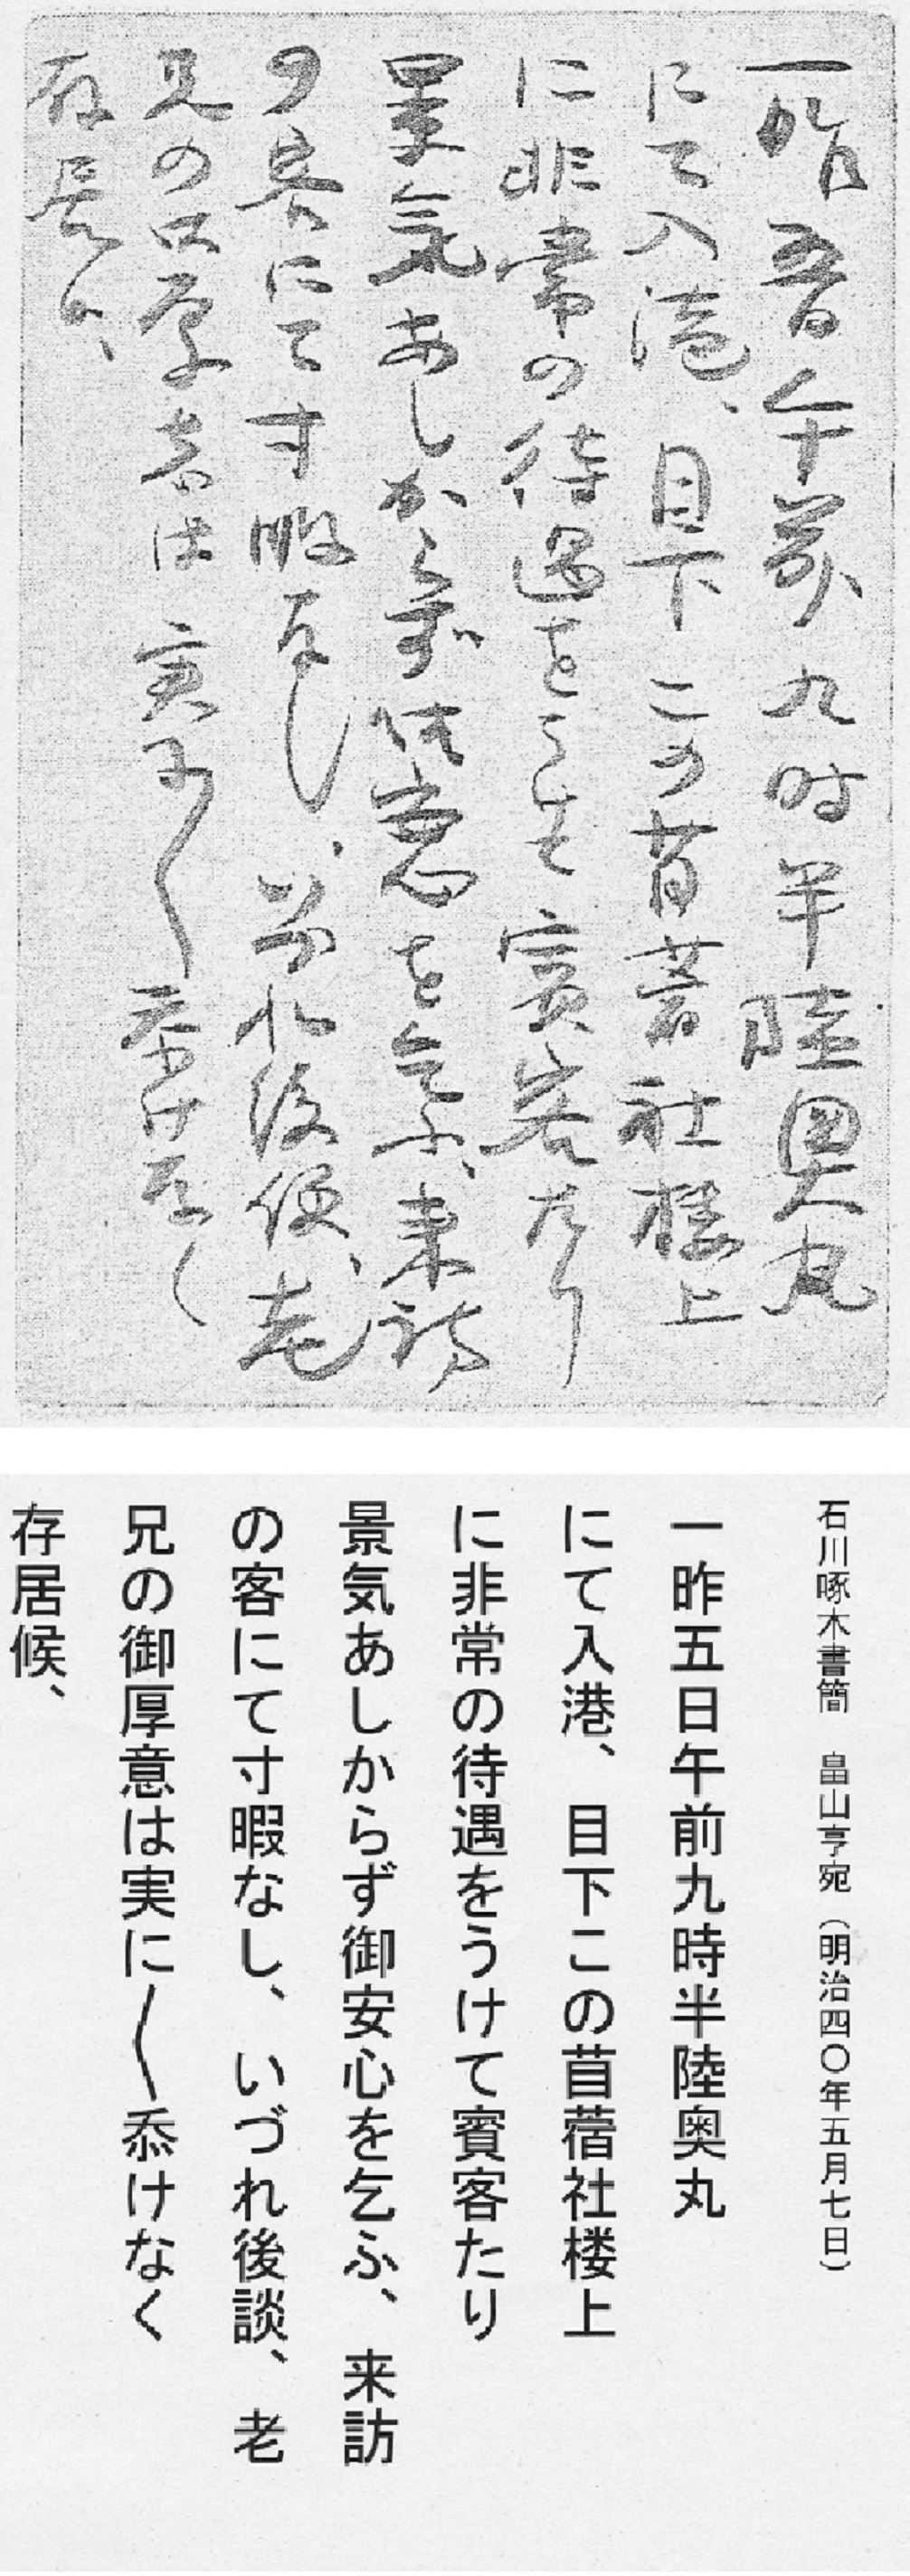 一昨五日午前九時半陸奥丸
にて入港、目下この苜蓿社楼上
に非常の待遇をうけて賓客たり
景気あしからず御安心を乞ふ、来訪
の客にて寸暇なし、いづれ後便、老
兄の御厚意は実に〳〵忝けなく
存居候、
石川啄木書簡　畠山亨宛（明治四〇年五月七日）
一昨五日午前九時半陸奥丸
にて入港、目下この苜蓿社楼上
に非常の待遇をうけて賓客たり
景気あしからず御安心を乞ふ、来訪
の客にて寸暇なし、いづれ後談、老
兄の御厚意は実に〳〵忝けなく
存居候、